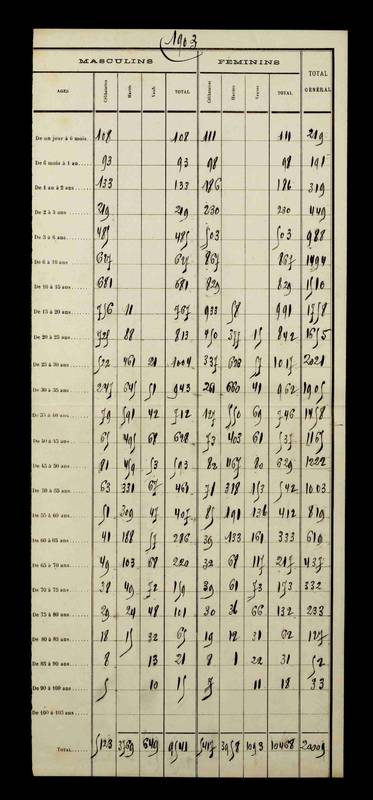 1903
MASCULINS FÉMININS
TOTAL GÉNÉRAL
AGES Célibataires Mariés Veufs TOTAL Célibataires Mariées Veuves TOTAL
De un jour à 6 mois 108 108 111 111 219
De 6 mois à 1 an 93 93 98 98 191
De 1 an à 2 ans 133 133 186 186 319
De 2 à 3 ans 219 219 230 230 449
De 3 à 6 ans 485 485 503 503 988
De 6 à 10 ans 627 627 867 867 1494
De 10 à 15 ans 681 681 829 829 1510
De 15 à 20 ans 756 11 767 933 58 991 1758
De 20 à 25 ans 725 88 813 450 377 15 842 1655
De 25 à 30 ans 522 461 21 1004 337 57 1017 2021
De 30 à 35 ans 247 645 51 943 261 660 41 962 1905
De 35 à 40 ans 79 591 42 712 127 550 69 746 1458
De 40 à 45 ans 65 495 68 628 73 403 61 537 1165
De 45 à 50 ans 81 459 53 593 82 467 80 629 1222
De 50 à 55 ans 63 331 67 461 71 318 153 542 1003
De 55 à 60 ans 51 309 47 407 85 191 136 412 819
De 60 à 65 ans 41 188 57 286 39 133 161 333 619
De 65 à 70 ans 49 103 68 220 32 68 117 217 437
De 70 à 75 ans 38 49 72 159 39 61 73 173 332
De 75 à 80 ans 29 24 48 101 30 36 66 132 233
De 80 à 85 ans 18 15 32 65 19 12 31 62 127
De 85 à 90 ans 8 13 21 8 1 22 31 52
De 90 à 100 ans 5 10 15 7 11 18 33
De 100 à 105 ans
TOTAL 5123 3769 649 9541 5417 3958 1093 10468 20009